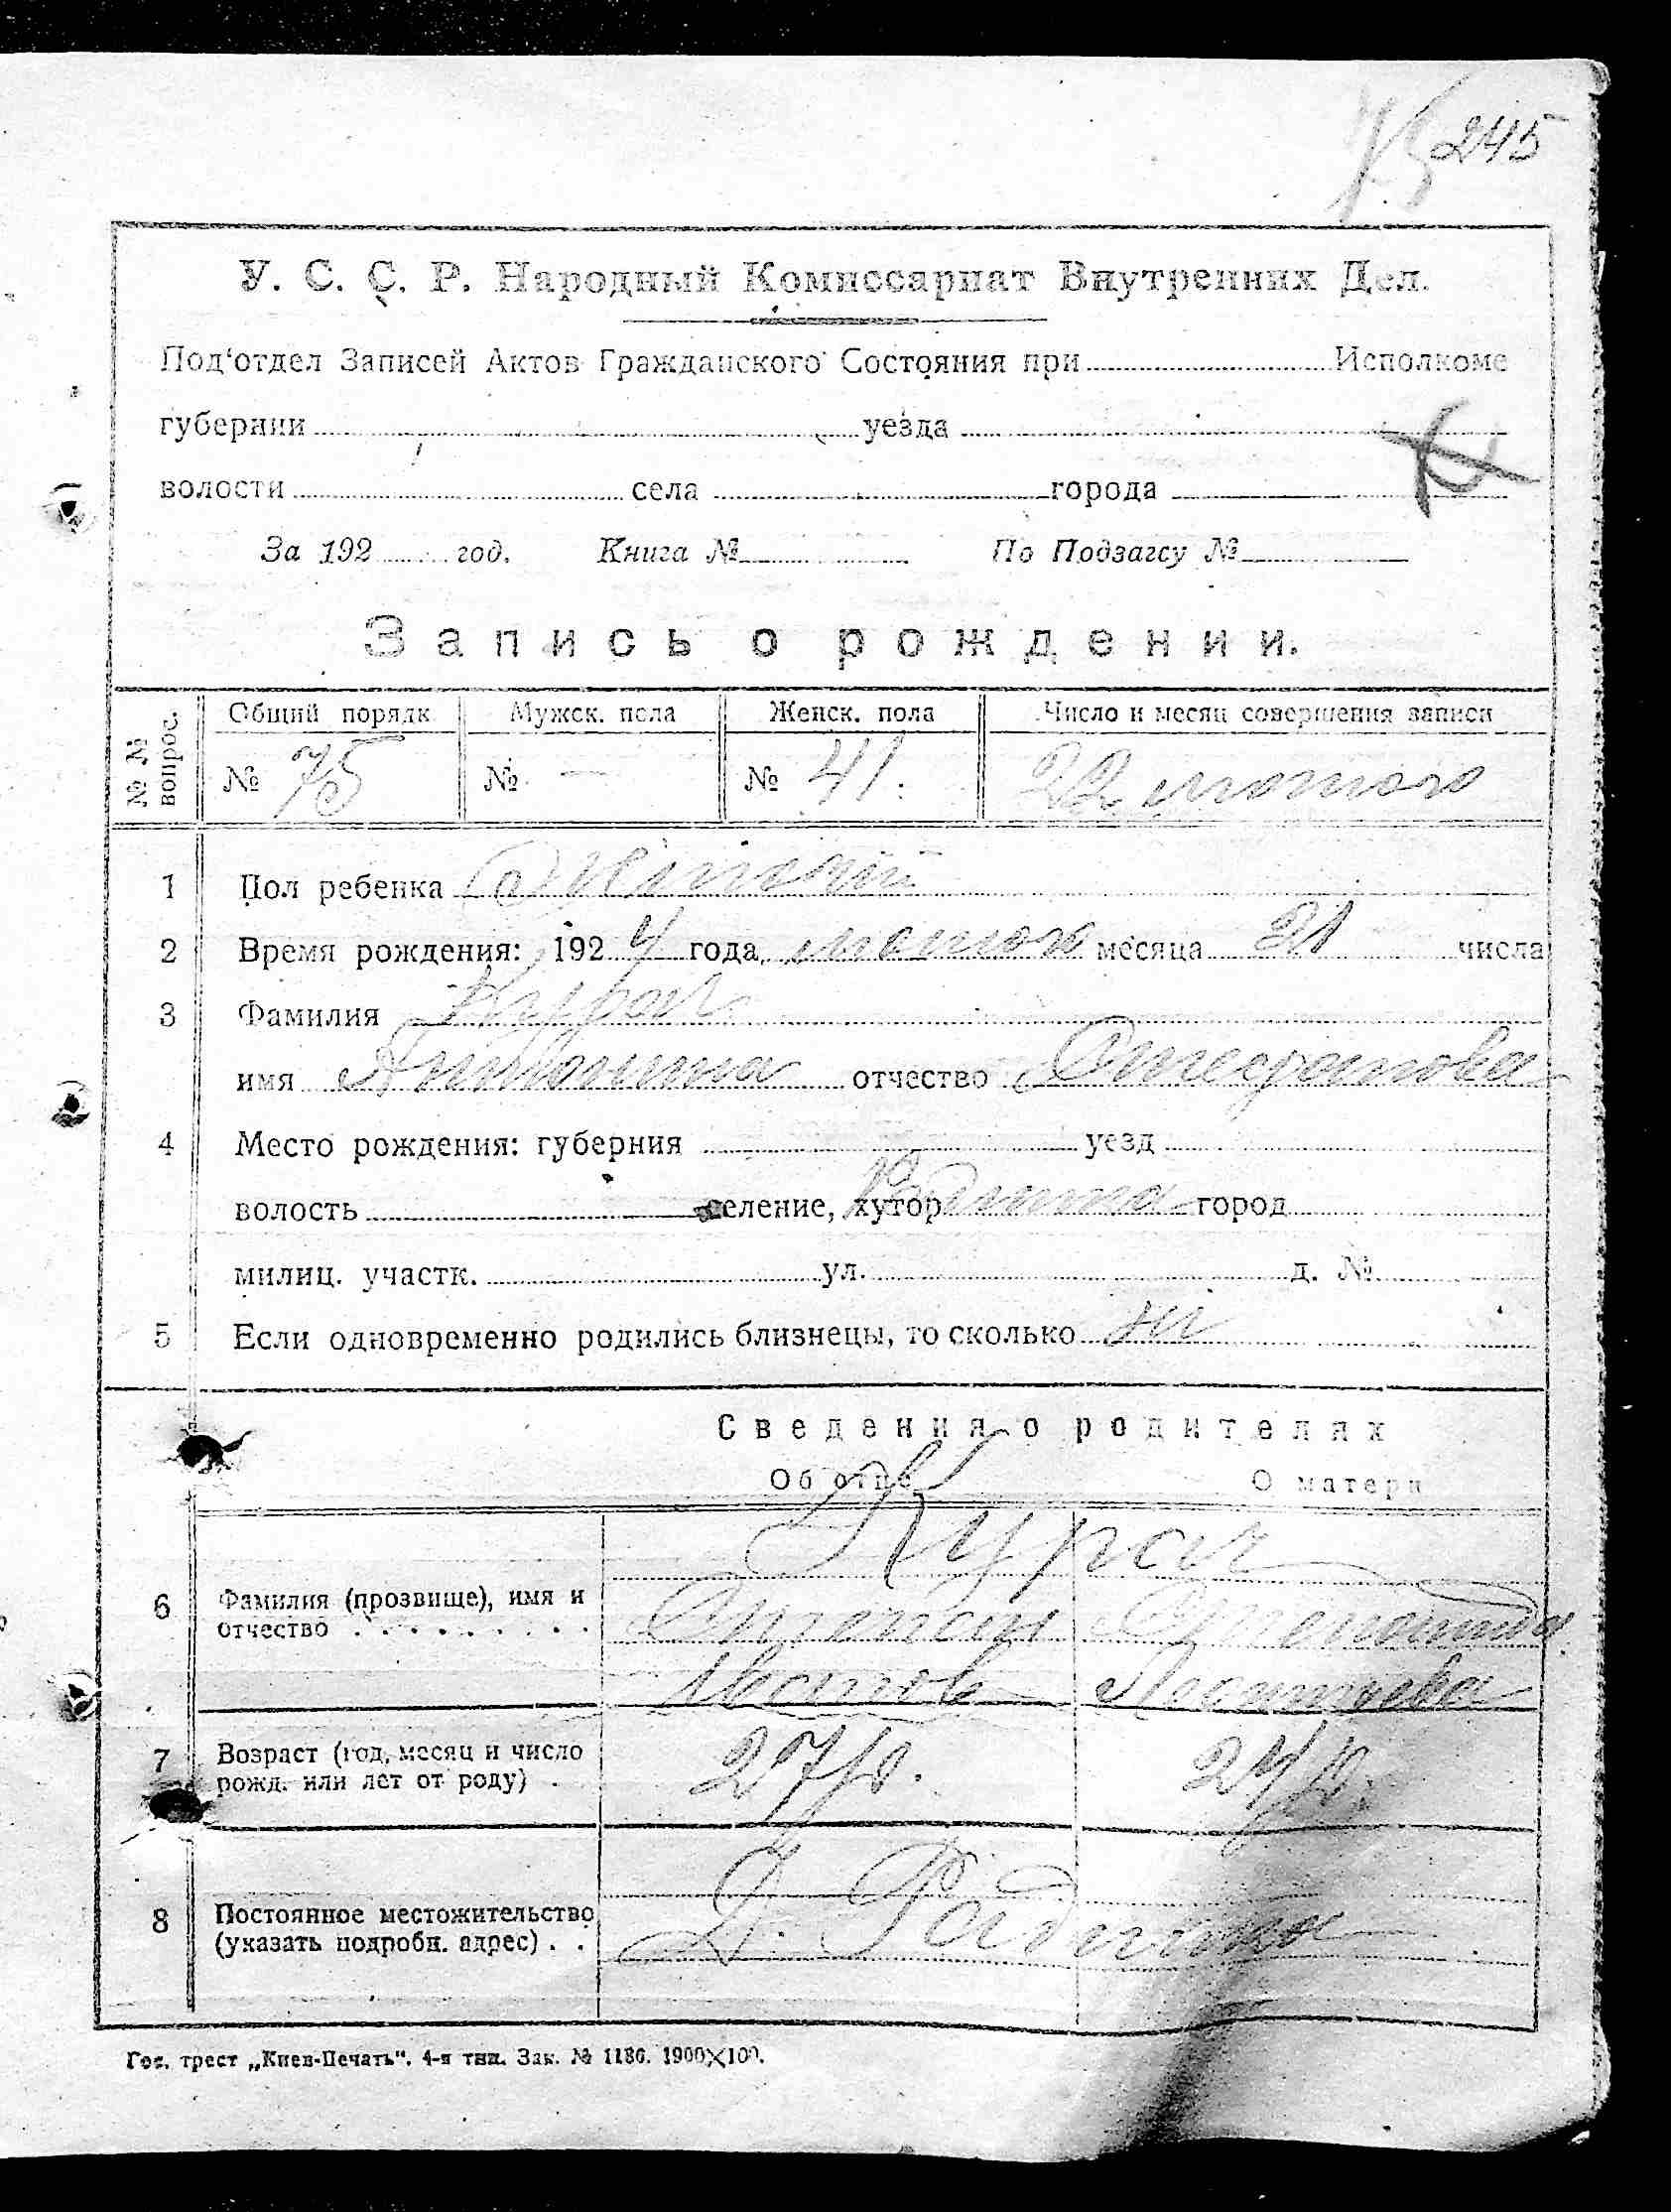 245
У. С. С. Р. Народный Комиссариат Внутренних Дел.
Под‘отдел Записей Актов Гражданского Состояния при Исполкоме
губернии уезда
волости села города
За 192 год. Книга № По Подзагсу №
Запись о рождении.
№ № вопрос. Общий порядк. Мужск. пола Женск. пола Число и месяц совершения записи
№ 75 № — № 41. 22 лютого
1 Пол ребенка Жіночій
2 Время рождения: 1924 года лютого месяца 21 числа
3 Фамилия Курач
имя отчество Степанова
4 Место рождения: губерния уезд
волость селение, хутор город
милиц. участк. ул. д. №
5 Если одновременно родились близнецы, то сколько ні
Сведения о родителях
Об отце О матери
Курач
6 Фамилия (прозвище), имя и отчество Степан Степанида
7 Возраст (год, месяц и число рожд. или лет от роду) 27 р. 24 р.
8 Постоянное местожительство (указать подробн. адрес)
Гос. трест „Киев-Печать“. 4-я тип. Зак. № 1186. 1900×100.